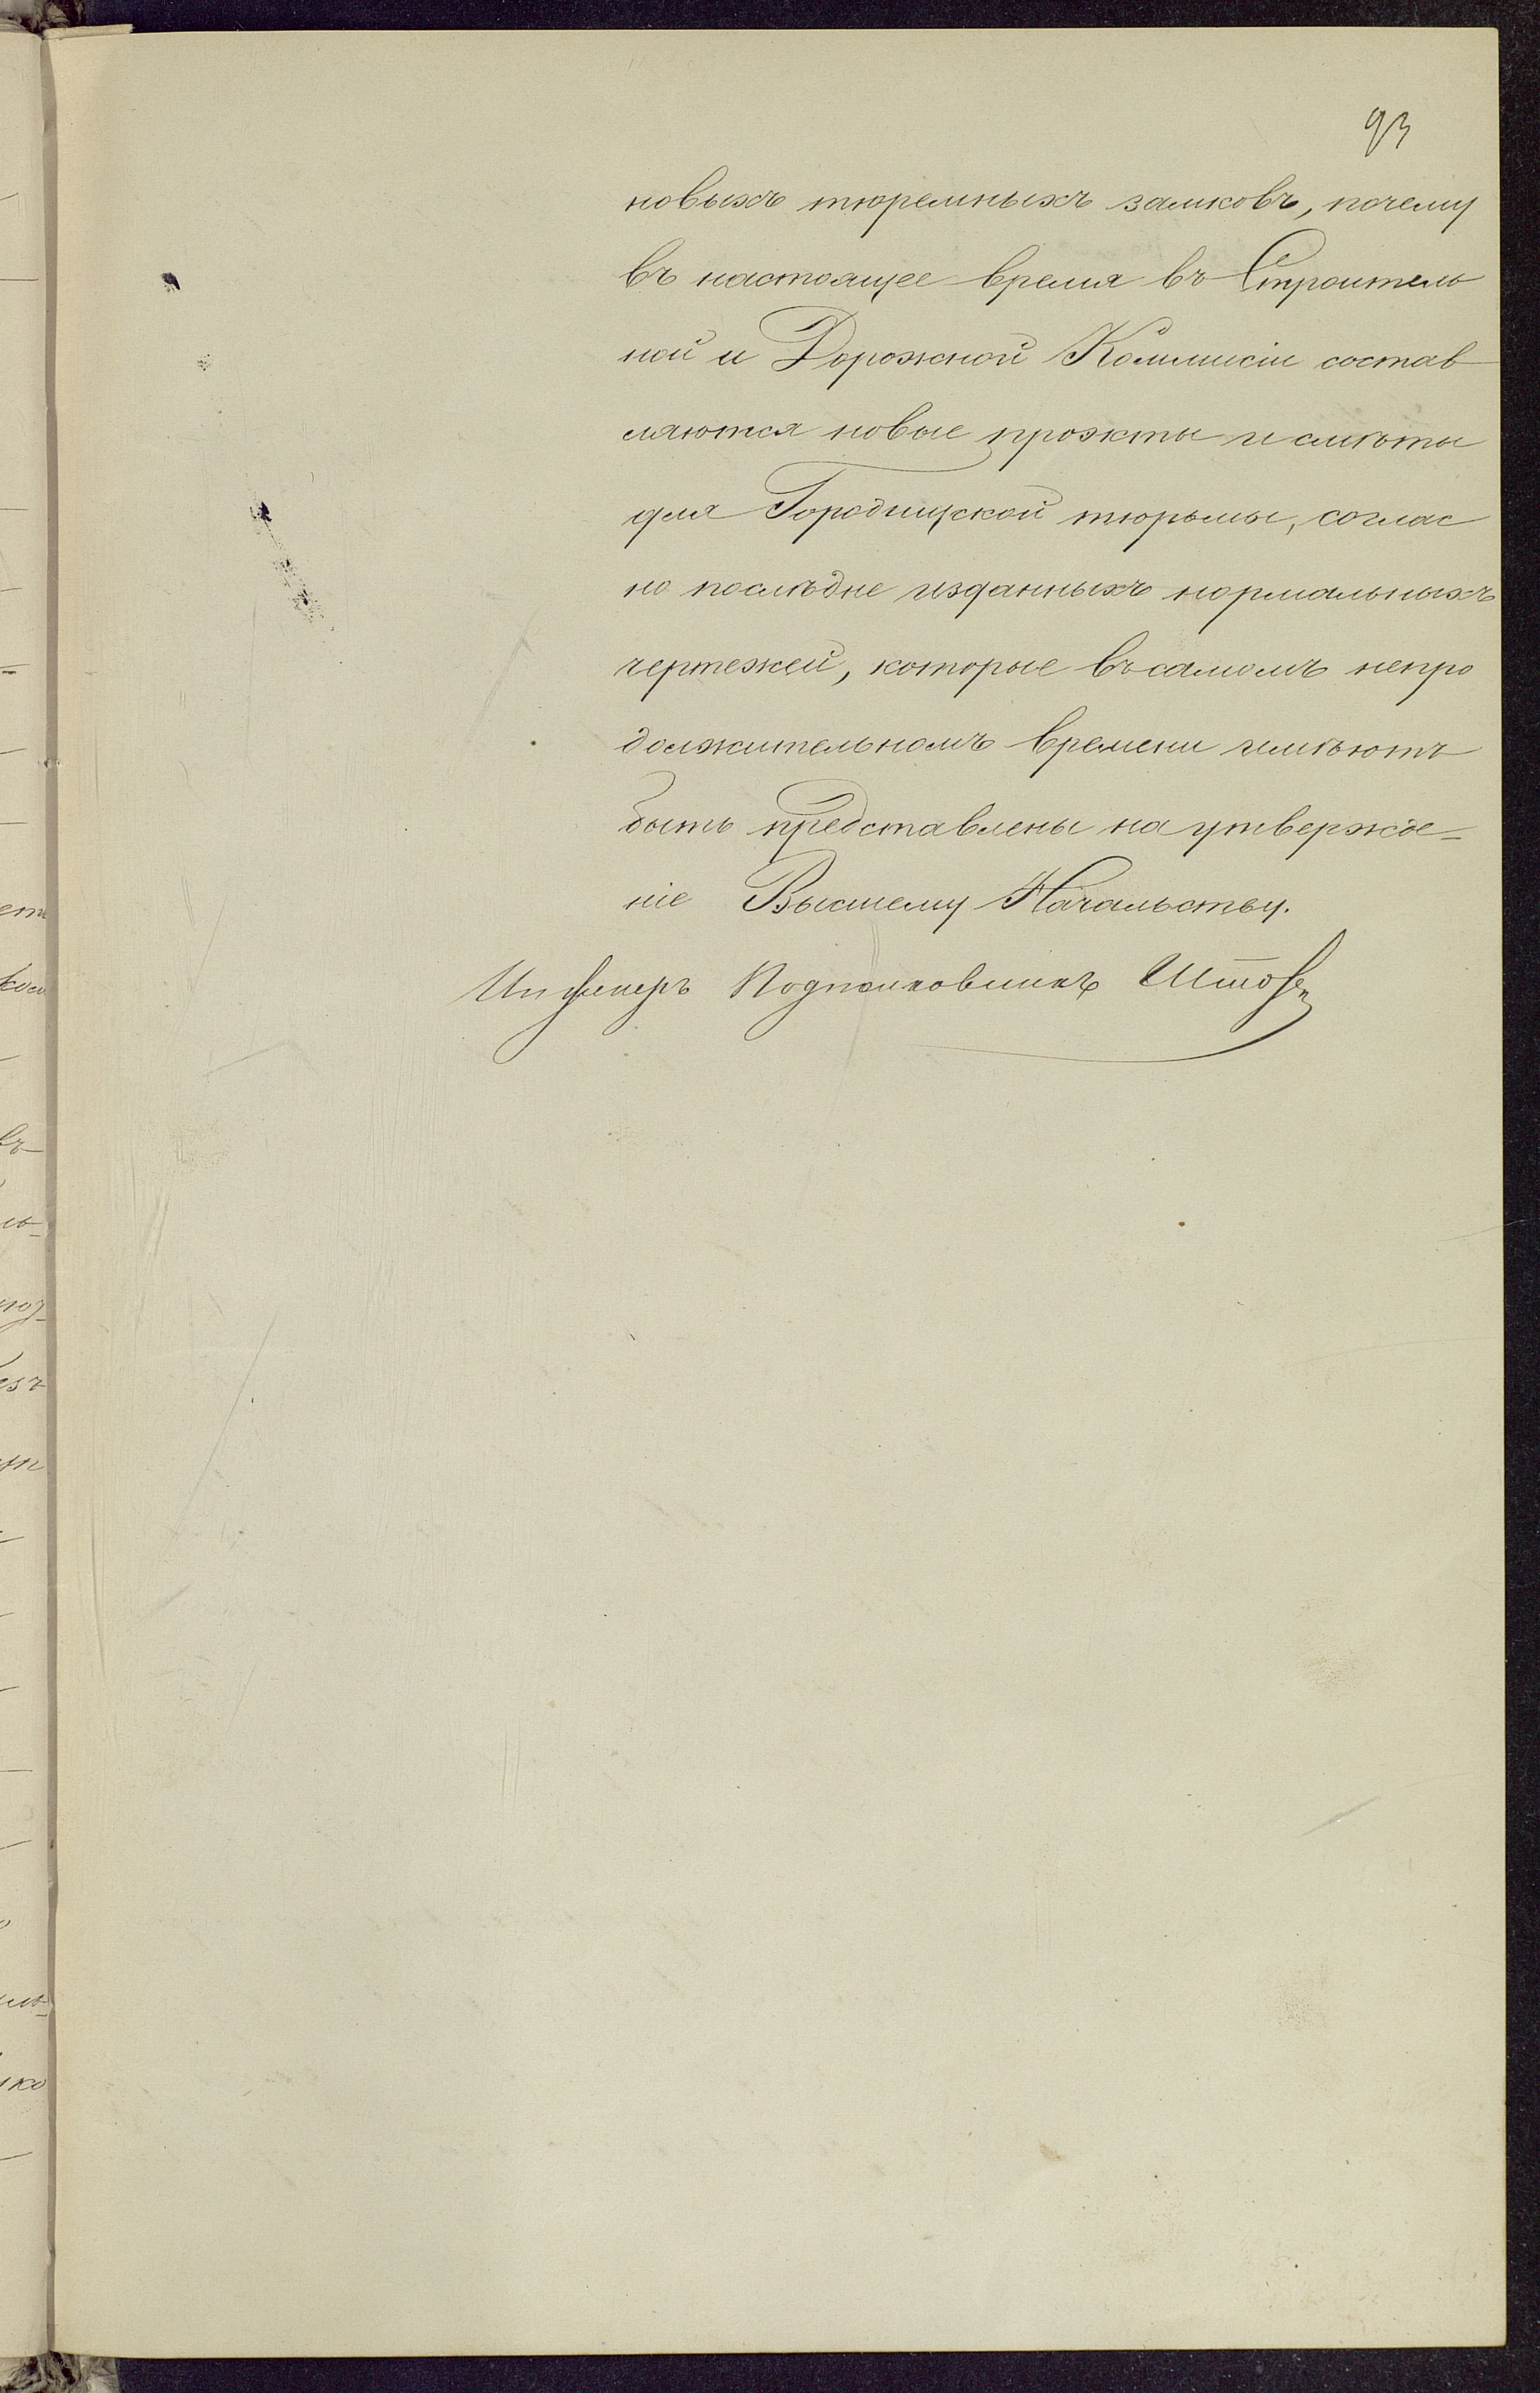 93
новыхъ тюремныхъ замковъ, почему
въ настоящее время въ Строитель
ной и Дорожной Коммисіи состав
ляются новые проэкты и смѣты
для Городницкой тюрьмы, соглас
но послѣдне изданныхъ нормальныхъ
чертежей, которые въ самомъ непро
должительномъ времени имѣютъ
быть представлены на утвержде-
ніе Высшему Начальству.
Инженеръ Подполковникъ